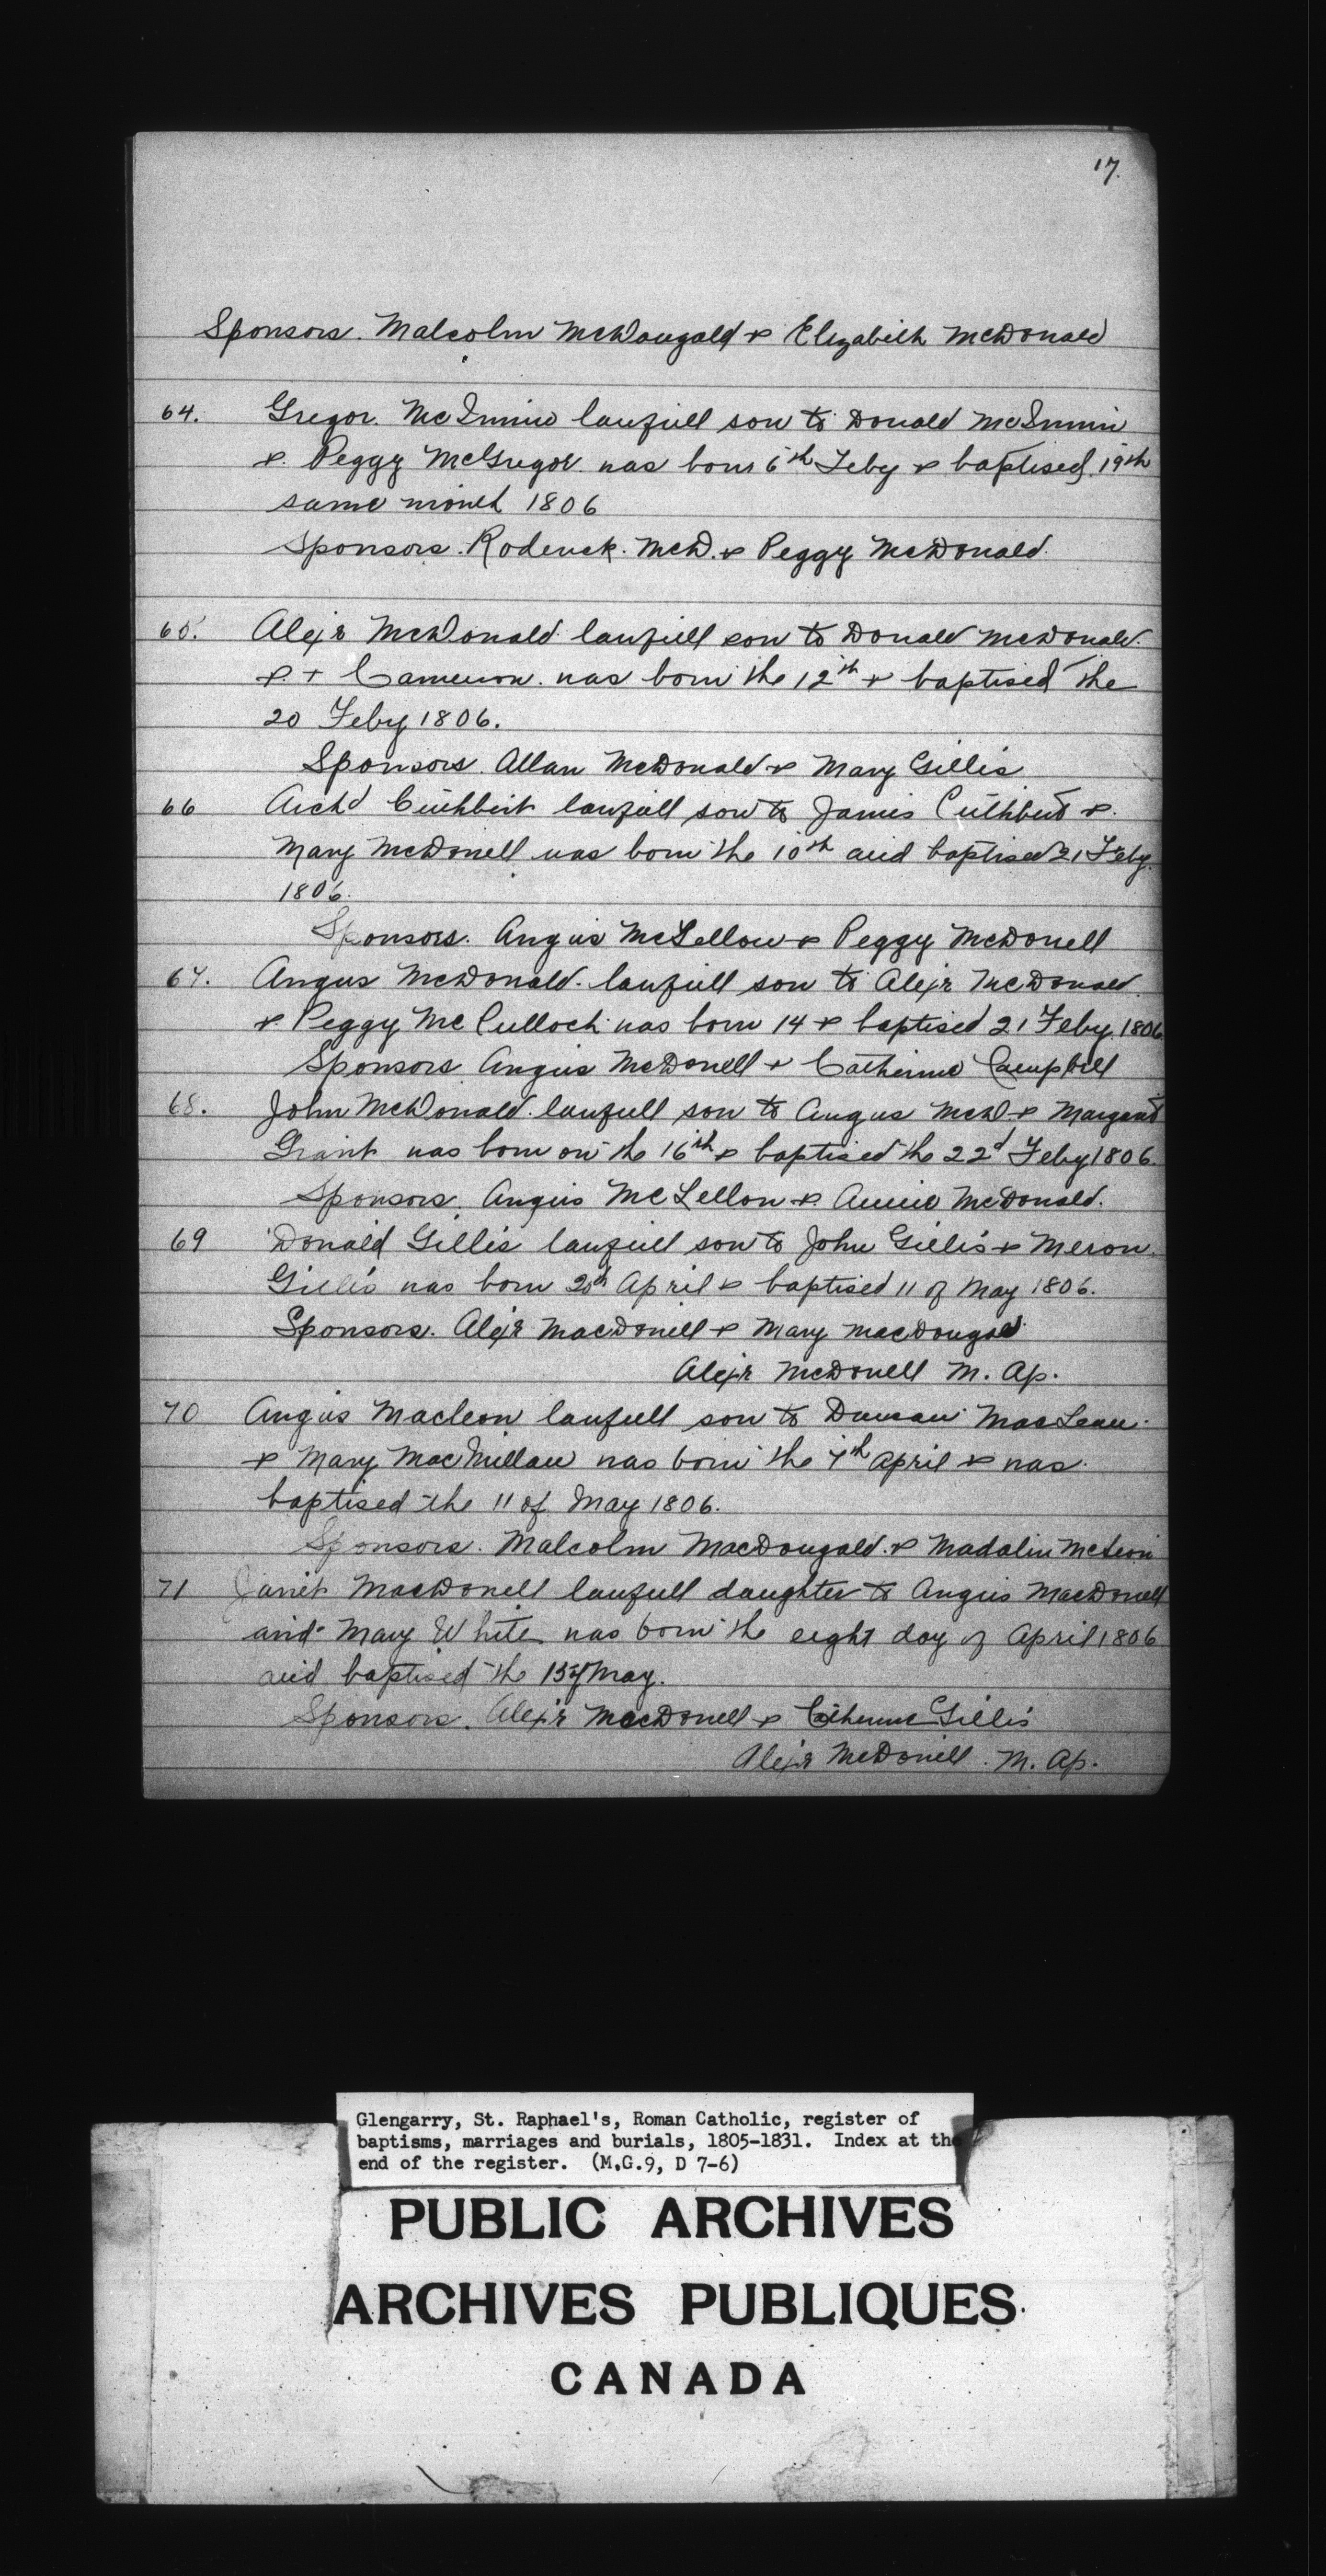 17.
Sponsors. Malcolm McDougald & Elizabeth McDonald
64. Gregor. McInnin lawfull son to Donald McInnin
& Peggy McGregor was born 6th Feby & baptised 19th
same month 1806
Sponsors. Roderick. McD. & Peggy McDonald.
65. Alexr McDonald lawfull son to Donald McDonald.
& + Cameron. was born the 12th & baptised the
20 Feby 1806.
Sponsors. Allan McDonald & Mary Gillis
66 Archd Cuthbert lawfull son to James Cuthbert &.
Mary McDonell was born the 10th and baptised 21 Feby.
1806.
Sponsors. Angus McLellon & Peggy McDonell
67. Angus McDonald. lawfull son to Alexr McDonald
& Peggy McCulloch was born 14 & baptised 21 Feby 1806
Sponsors Angus McDonell & Catherine Campbell
68. John McDonald lawfull son to Angus McD & Margaret
Grant was born on the 16th & baptised the 22d Feby 1806.
Sponsors. Angus McLellon & Annie McDonald.
69 Donald Gillis lawfull son to John Gillis & Meron.
Gillis was born 20th April & baptised 11 of May 1806.
Sponsors. Alexr MacDonell & Mary MacDougald
Alexr McDonell M. Ap.
70 Angus Macleon lawfull son to Duncan MacLean.
& Mary MacMillan was born the 7th April & was
baptised the 11 of May 1806.
Sponsors. Malcolm MacDougald. & Madalin McLeon
71 Janet MacDonell lawfull daughter to Angus MacDonell
and Mary White was born the eight day of April 1806
and baptised the 15 of May.
Sponsors. Alexr MacDonell & Catherine Gillis
Alexr McDonell. M. Ap.
Glengarry, St. Raphael's, Roman Catholic, register of
baptisms, marriages and burials, 1805-1831. Index at the
end of the register. (M.G.9, D 7-6)
PUBLIC ARCHIVES
ARCHIVES PUBLIQUES
CANADA